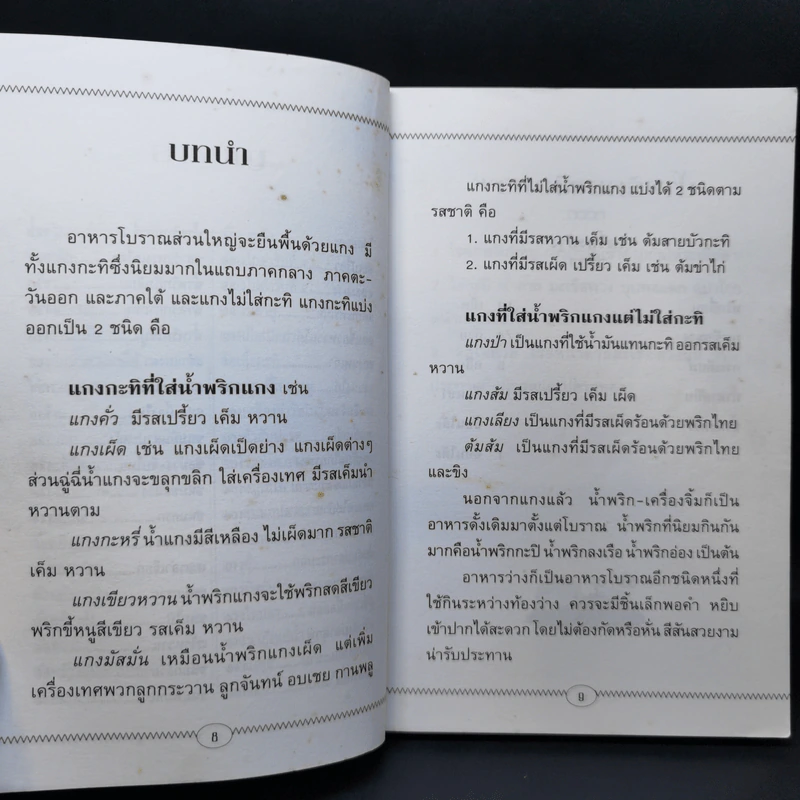 บทนำ
อาหารโบราณส่วนใหญ่จะยืนพื้นด้วยแกง มี
ทั้งแกงกะทิซึ่งนิยมมากในแถบภาคกลาง ภาคตะ-
วันออก และภาคใต้ และแกงไม่ใส่กะทิ แกงกะทิแบ่ง
ออกเป็น 2 ชนิด คือ
แกงกะทิที่ใส่น้ำพริกแกง เช่น
แกงคั่ว มีรสเปรี้ยว เค็ม หวาน
แกงเผ็ด เช่น แกงเผ็ดเป็ดย่าง แกงเผ็ดต่างๆ
ส่วนฉู่ฉี่น้ำแกงจะขลุกขลิก ใส่เครื่องเทศ มีรสเค็มนำ
หวานตาม
แกงกะหรี่ น้ำแกงมีสีเหลือง ไม่เผ็ดมาก รสชาติ
เค็ม หวาน
แกงเขียวหวาน น้ำพริกแกงจะใช้พริกสดสีเขียว
พริกขี้หนูสีเขียว รสเค็ม หวาน
แกงมัสมั่น เหมือนน้ำพริกแกงเผ็ด แต่เพิ่ม
เครื่องเทศพวกลูกกระวาน ลูกจันทน์ อบเชย กานพลู
8
แกงกะทิที่ไม่ใส่น้ำพริกแกง แบ่งได้ 2 ชนิดตาม
รสชาติ คือ
1. แกงที่มีรสหวาน เค็ม เช่น ต้มสายบัวกะทิ
2. แกงที่มีรสเผ็ด เปรี้ยว เค็ม เช่น ต้มข่าไก่
แกงที่ใส่น้ำพริกแกงแต่ไม่ใส่กะทิ
แกงป่า เป็นแกงที่ใช้น้ำมันแทนกะทิ ออกรสเค็ม
หวาน
แกงส้ม มีรสเปรี้ยว เค็ม เผ็ด
แกงเลียง เป็นแกงที่มีรสเผ็ดร้อนด้วยพริกไทย
ต้มส้ม เป็นแกงที่มีรสเผ็ดร้อนด้วยพริกไทย
และขิง
นอกจากแกงแล้ว น้ำพริก-เครื่องจิ้มก็เป็น
อาหารดั้งเดิมมาตั้งแต่โบราณ น้ำพริกที่นิยมกินกัน
มากคือน้ำพริกกะปิ น้ำพริกลงเรือ น้ำพริกอ่อง เป็นต้น
อาหารว่างก็เป็นอาหารโบราณอีกชนิดหนึ่งที่
ใช้กินระหว่างท้องว่าง ควรจะมีชิ้นเล็กพอคำ หยิบ
เข้าปากได้สะดวก โดยไม่ต้องกัดหรือหั่น สีสันสวยงาม
น่ารับประทาน
9